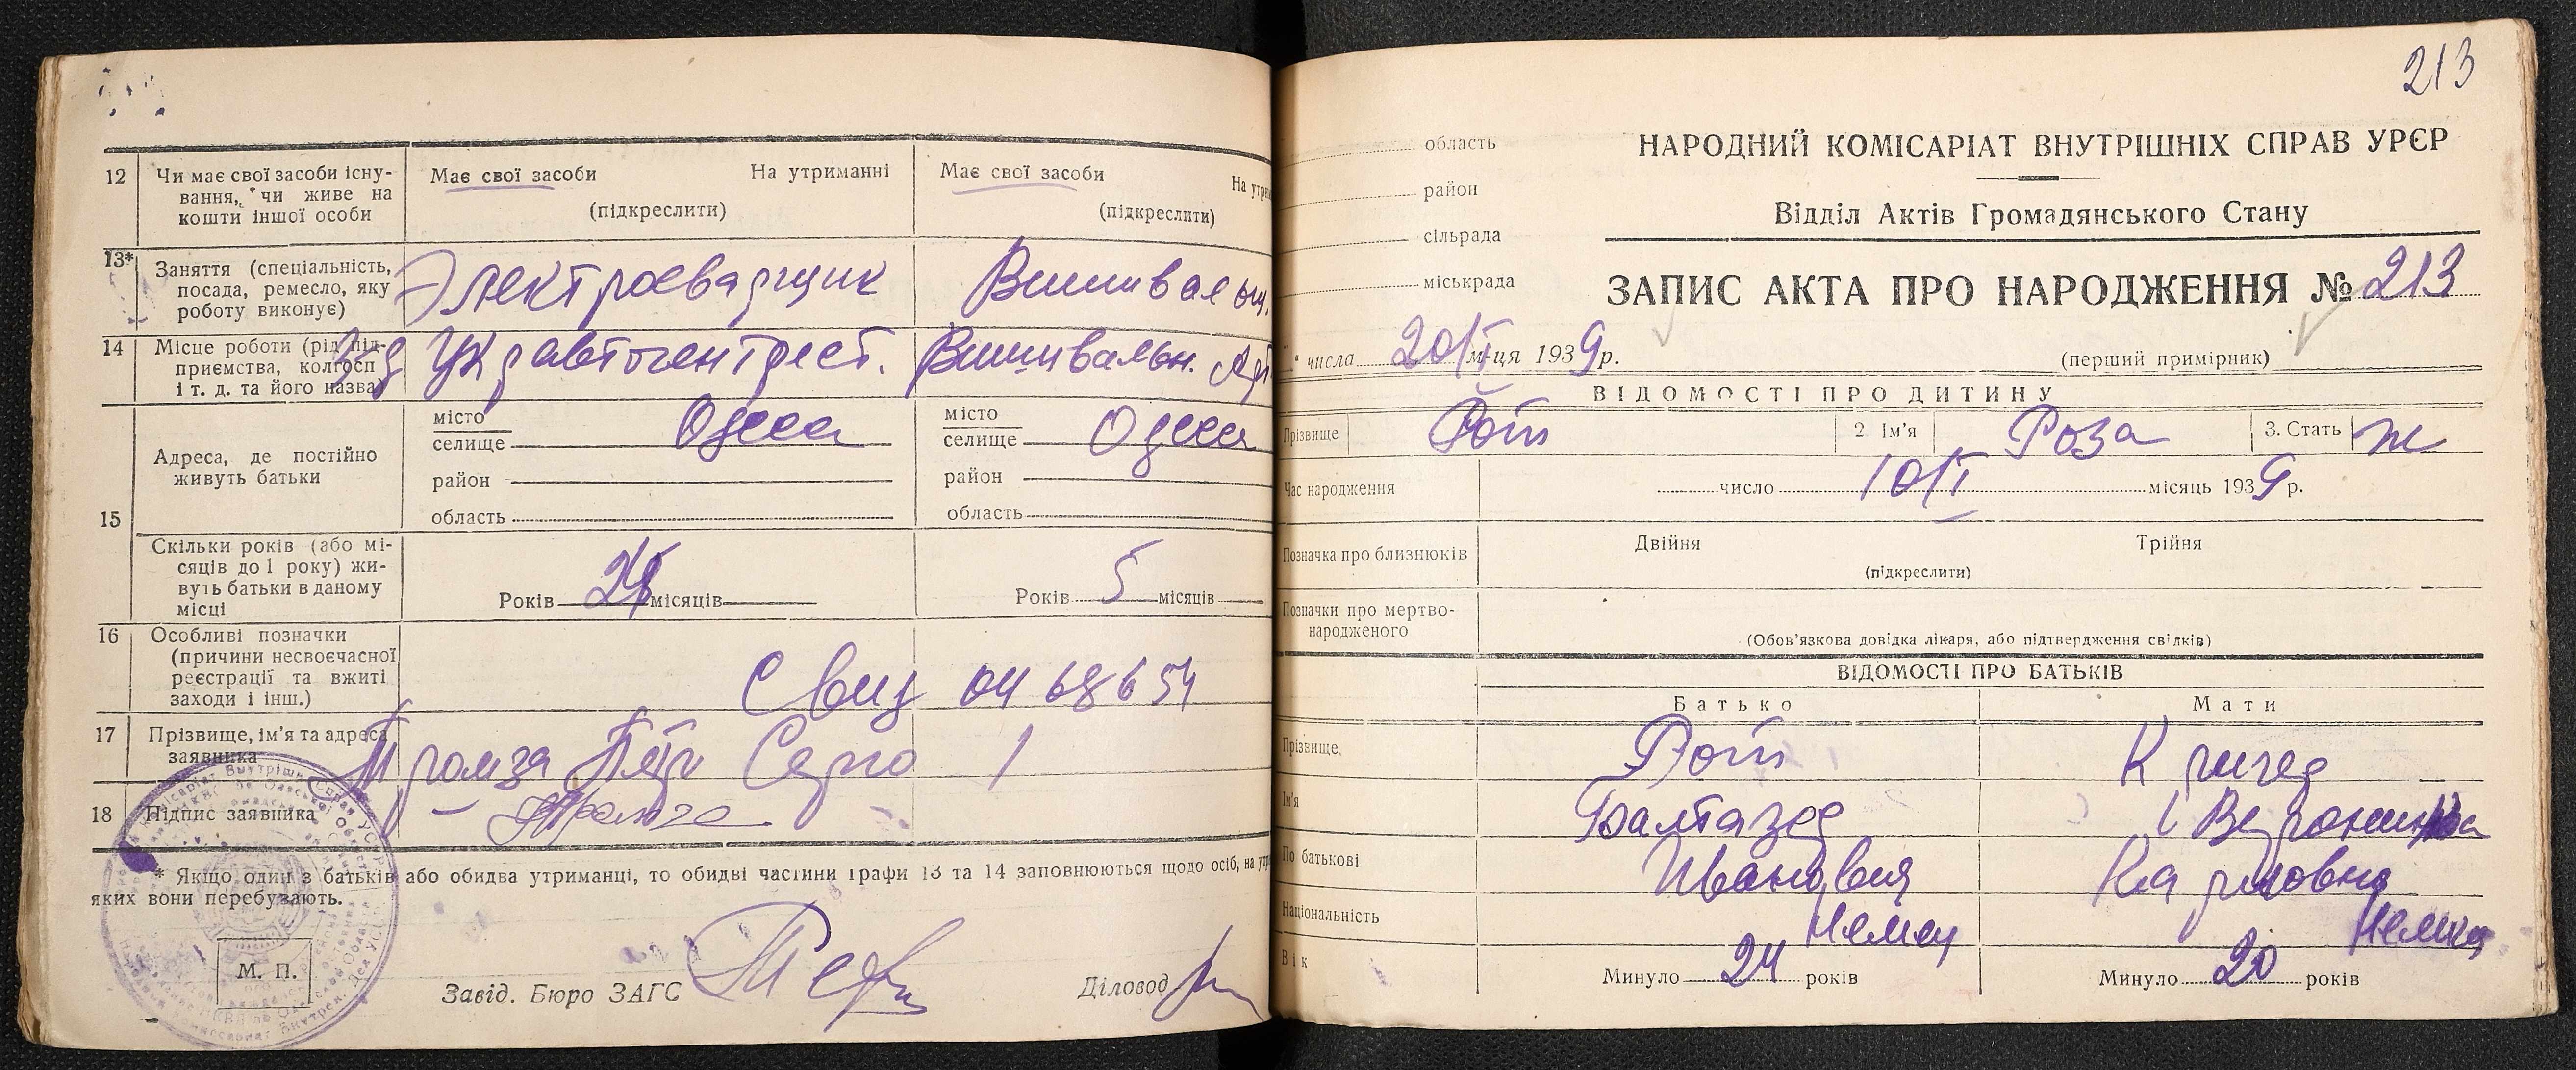 12 Чи має свої засоби існу-
вання, чи живе на
кошти іншої особи
Має свої засоби На утриманні
(підкреслити)
Має свої засоби На утрим
(підкреслити)
13* Заняття (спеціальність,
посада, ремесло, яку
роботу виконує)
Электросварщик
14 Місце роботи (рід під-
приємства, колгосп
і т. д. та його назва)
15 Адреса, де постійно
живуть батьки
місто
селище Одесса
район
область
місто
селище Одесса
район
область
Скільки років (або мі-
сяців до 1 року) жи-
вуть батьки в даному
місці
Років 24 місяців
Років 5 місяців
16 Особливі позначки
(причини несвоєчасної
реєстрації та вжиті
заходи і інш.)
17 Прізвище, ім'я та адреса
заявника
18 Підпис заявника
* Якщо один з батьків або обидва утриманці, то обидві частини графи 13 та 14 заповнюються щодо осіб, на
яких вони перебувають.
М. П.
Завід. Бюро ЗАГС
Діловод
213
область
район
сільрада
міськрада
НАРОДНИЙ КОМІСАРІАТ ВНУТРІШНІХ СПРАВ УРЄР
Відділ Актів Громадянського Стану
ЗАПИС АКТА ПРО НАРОДЖЕННЯ № 213
" числа 20/I м-ця 1939 р.
(перший примірник)
ВІДОМОСТІ ПРО ДИТИНУ
Прізвище Рот 2 Ім'я Роза 3. Стать ж
Час народження число 10/I місяць 1939 р.
Позначка про близнюків Двійня Трійня
(підкреслити)
Позначки про мертво-
народженого
(Обов'язкова довідка лікаря, або підтвердження свідків)
ВІДОМОСТІ ПРО БАТЬКІВ
Батько Мати
Прізвище, Рот
Ім'я Балтазар Вероника
По батькові Иванович Карловна
Національність Немец Немка
Вік Минуло 24 років Минуло 20 років